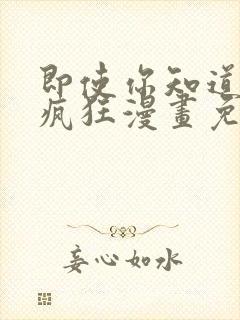 即使你知道
疯狂漫畫免
妄心如水